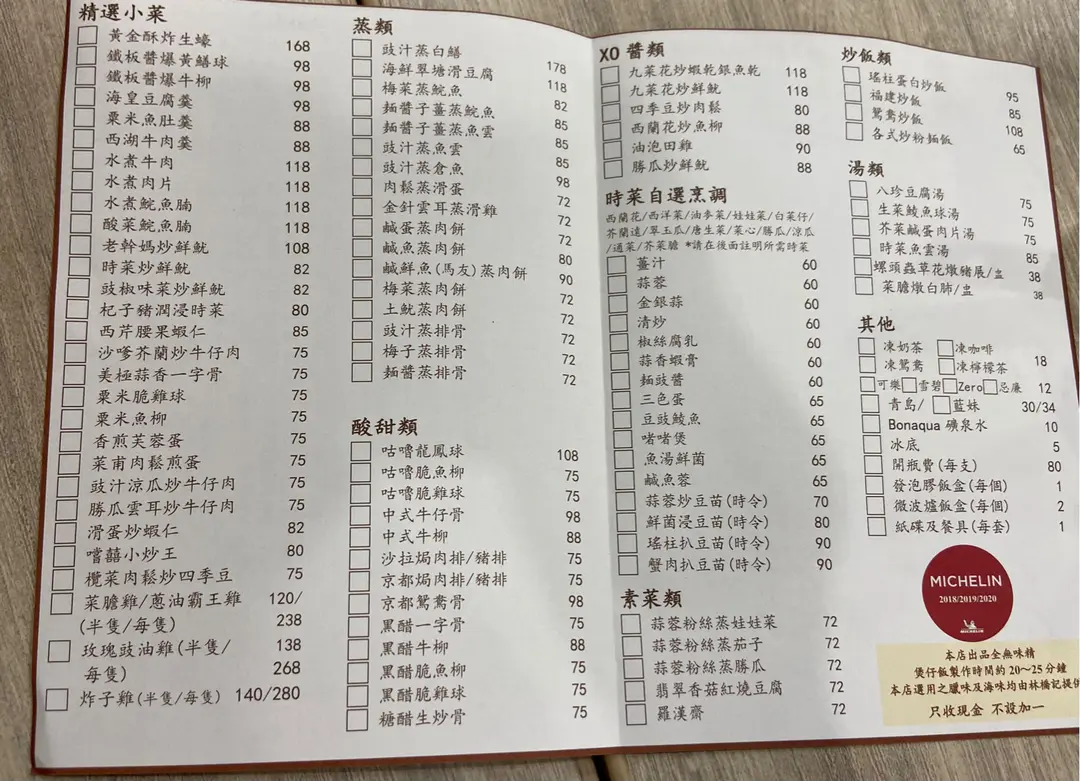 精選小菜
黃金酥炸生蠔 168
鐵板醬爆黃鱔球 98
鐵板醬爆牛柳 98
海皇豆腐羹 98
粟米魚肚羹 88
西湖牛肉羹 88
水煮牛肉 118
水煮肉片 118
水煮鯇魚腩 118
酸菜鯇魚腩 118
老幹媽炒鮮魷 108
時菜炒鮮魷 82
豉椒味菜炒鮮魷 82
杞子豬潤浸時菜 80
西芹腰果蝦仁 85
沙嗲芥蘭炒牛仔肉 75
美極蒜香一字骨 75
粟米脆雞球 75
粟米魚柳 75
香煎芙蓉蛋 75
菜甫肉鬆煎蛋 75
豉汁涼瓜炒牛仔肉 75
勝瓜雲耳炒牛仔肉 75
滑蛋炒蝦仁 82
嚐囍小炒王 80
欖菜肉鬆炒四季豆 75
菜膽雞/蔥油霸王雞 120/
(半隻/每隻) 238
玫瑰豉油雞(半隻/ 138
每隻) 268
炸子雞(半隻/每隻) 140/280
蒸類
豉汁蒸白鱔 178
海鮮翠塘滑豆腐 118
梅菜蒸鯇魚 82
麵醬子薑蒸鯇魚 85
麵醬子薑蒸魚雲 85
豉汁蒸魚雲 85
豉汁蒸倉魚 98
肉鬆蒸滑蛋 72
金針雲耳蒸滑雞 72
鹹蛋蒸肉餅 72
鹹魚蒸肉餅 80
鹹鮮魚(馬友)蒸肉餅 90
梅菜蒸肉餅 72
土魷蒸肉餅 72
豉汁蒸排骨 72
梅子蒸排骨 72
麵醬蒸排骨 72
酸甜類
咕嚕龍鳳球 108
咕嚕脆魚柳 75
咕嚕脆雞球 75
中式牛仔骨 98
中式牛柳 88
沙拉焗肉排/豬排 75
京都焗肉排/豬排 75
京都鴛鴦骨 98
黑醋一字骨 75
黑醋牛柳 88
黑醋脆魚柳 75
黑醋脆雞球 75
糖醋生炒骨 75
XO 醬類
九菜花炒蝦乾銀魚乾 118
九菜花炒鮮魷 118
四季豆炒肉鬆 80
西蘭花炒魚柳 88
油泡田雞 90
勝瓜炒鮮魷 88
時菜自選烹調
西蘭花/西洋菜/油麥菜/娃娃菜/白菜仔/
芥蘭遠/翠玉瓜/唐生菜/菜心/勝瓜/涼瓜
/通菜/芥菜膽 *請在後面註明所需時菜
薑汁 60
蒜蓉 60
金銀蒜 60
清炒 60
椒絲腐乳 60
蒜香蝦膏 60
麵豉醬 60
三色蛋 65
豆豉鯪魚 65
啫啫煲 65
魚湯鮮菌 65
鹹魚蓉 65
蒜蓉炒豆苗(時令) 70
鮮菌浸豆苗(時令) 80
瑤柱扒豆苗(時令) 90
蟹肉扒豆苗(時令) 90
素菜類
蒜蓉粉絲蒸娃娃菜 72
蒜蓉粉絲蒸茄子 72
蒜蓉粉絲蒸勝瓜 72
翡翠香菇紅燒豆腐 72
羅漢齋 72
炒飯類
瑤柱蛋白炒飯 95
福建炒飯 85
鴛鴦炒飯 108
各式炒粉麵飯 65
湯類
八珍豆腐湯 75
生菜鯪魚球湯 75
芥菜鹹蛋肉片湯 75
時菜魚雲湯 85
螺頭蟲草花燉豬展/盅 38
菜膽燉白肺/盅 38
其他
凍奶茶 凍咖啡
凍鴛鴦 凍檸檬茶 18
可樂 雪碧 Zero 忌廉 12
青島/ 藍妹 30/34
Bonaqua 礦泉水 10
冰底 5
開瓶費(每支) 80
發泡膠飯盒(每個) 1
微波爐飯盒(每個) 2
紙碟及餐具(每套) 1
MICHELIN
2018/2019/2020
MICHELIN
本店出品全無味精
煲仔飯製作時間約20～25分鐘
本店選用之臘味及海味均由林橋記提供
只收現金 不設加一